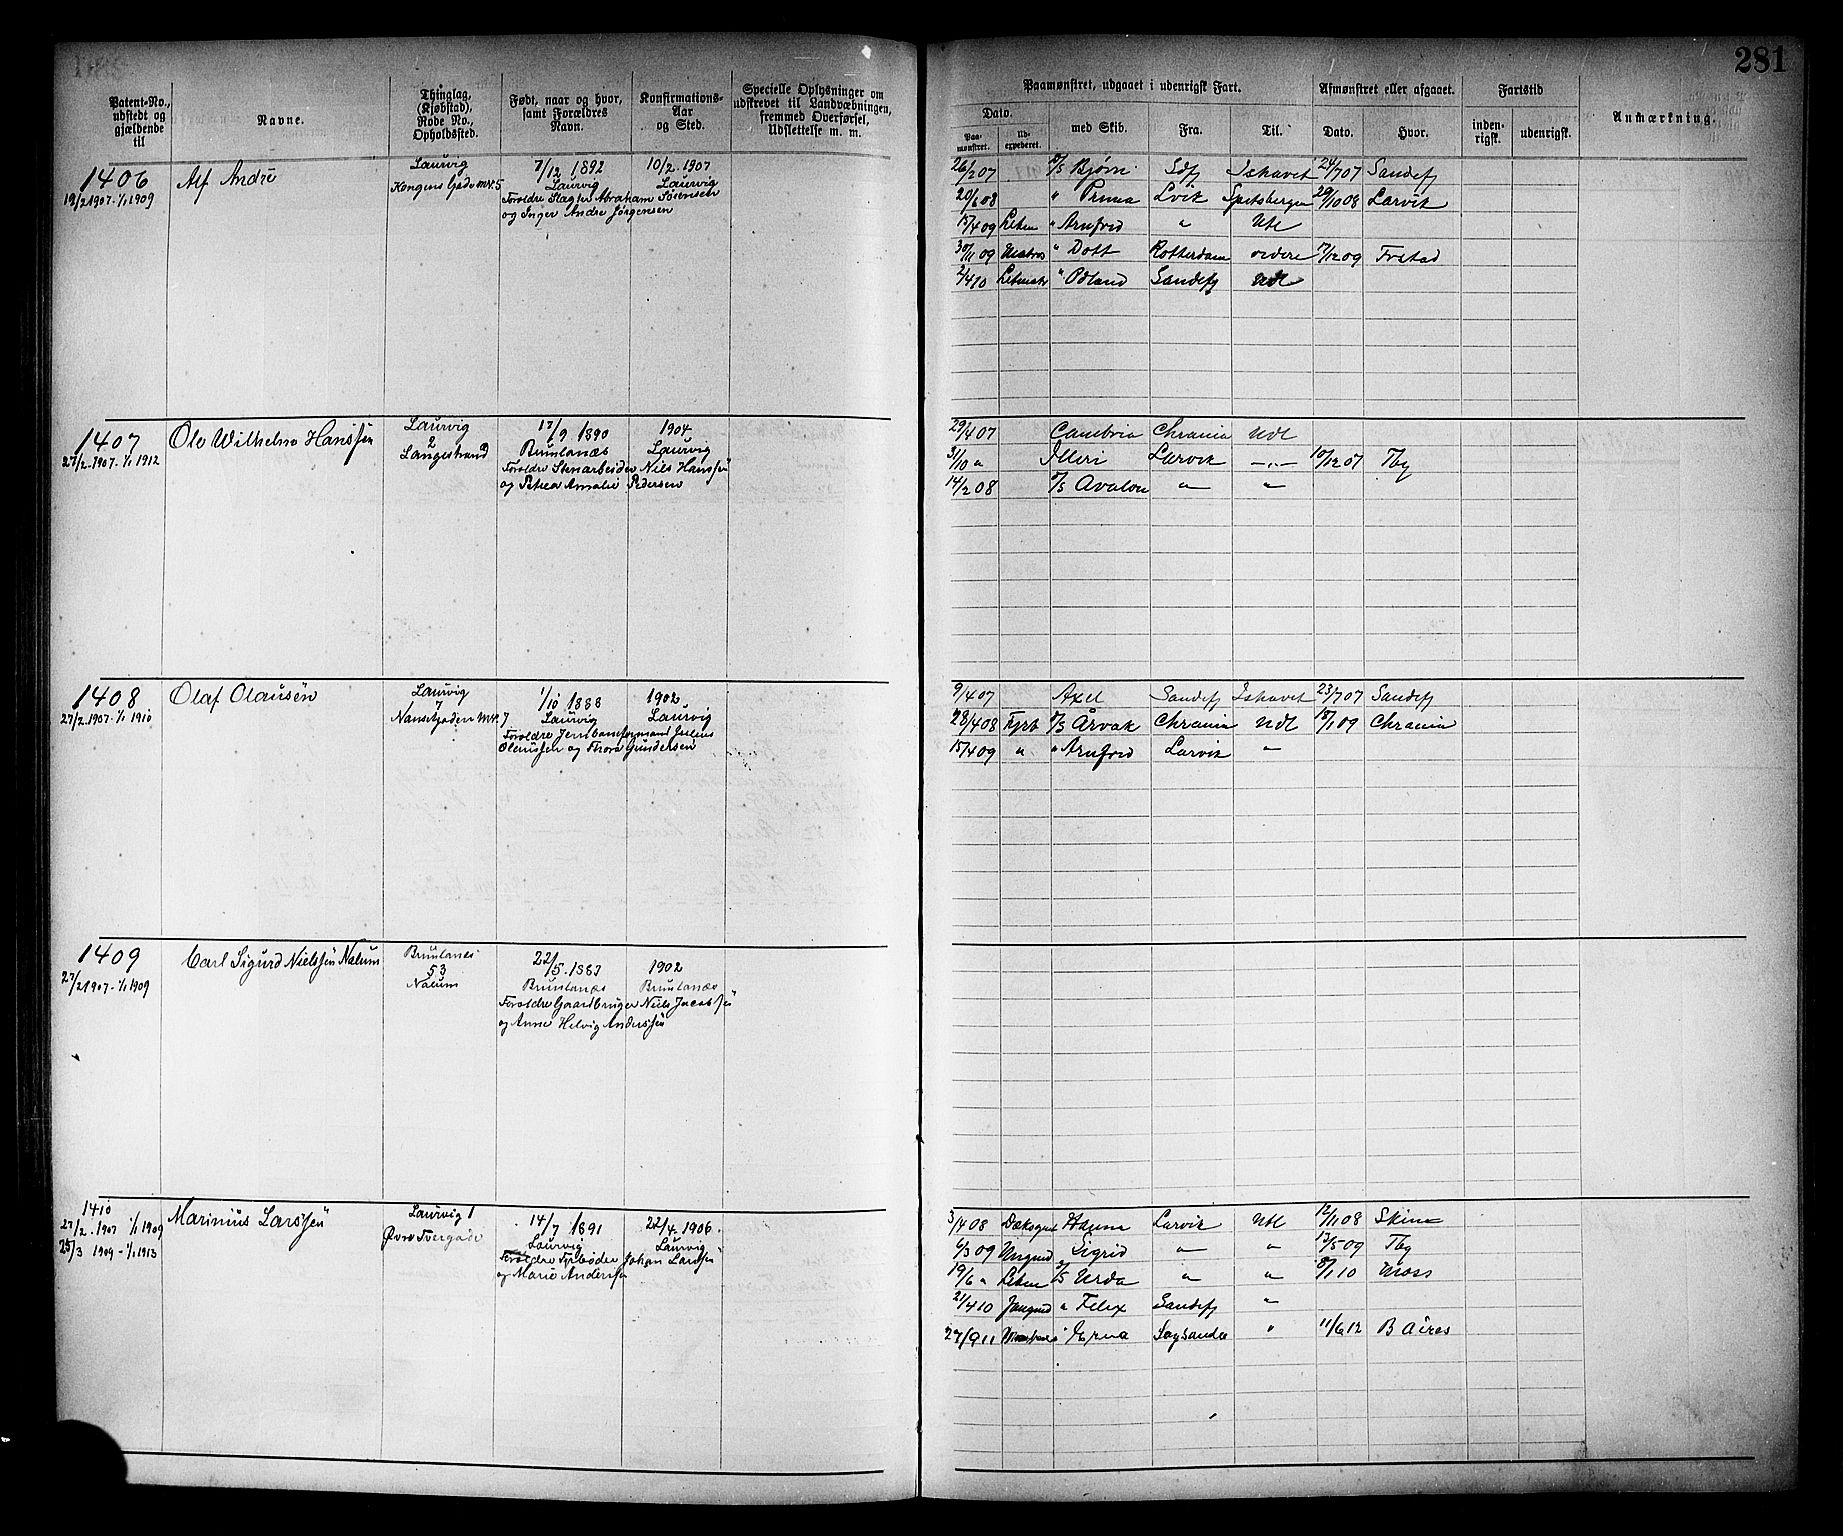 281
Patent-No., udstedt og gjældende til
Navne.
Thinglag, (Kjøbstad), Rode No., Opholdssted.
Født, naar og hvor, samt Forældres Navn.
Konfirmations-Aar og Sted.
Specielle Oplysninger om udskrevet til Landværbningen, fremmed Overførsel, Udslettelse m. m.
Paamønstret, udgaaet i udenrigsk Fart.
Dato.
Paa-mønstret.
Ud-expederet.
med Skib.
Fra.
Til.
Afmønstret eller afgaaet.
Dato.
Hvor.
Fartstid
inden-rigsk.
udenrigsk.
Anmærkning.
1406
19/2 1907 - 1/1 1909
Alf André
Laurvig
Kongens Gade nr. 5
7/12 1892
Laurvig
10/2. 1907
Laurvig
Foreldre Slagter Abraham Sörensen
og Inger Andre Jørgensen
26/2 07 D/S Bjørn Sdfj Ishavet 24/7 07 Sandefj
20/6 08 " Prima Lvik Spetsbergen 29/10 08 Larvik
15/4 09 " Arnfrid " Udl
30/11 09 Matros " Dott Rotterdam videre 17/12 09 Frstad
2/4 10 Letmatr " Odland Sandefj Udl
1407
27/2. 1907 - 1/1 1912
Ole Wilhelm Hanssen
Laurvig
2
Langestrand
17/9 1890
Brunlanæs
1904
Laurvig
Foreldre Stenarbeider Niels Hanssen
og Petrea Amalie Pedersen
29/4 07 Cambria Chrania Udl
31/10 " Illeri Larvik —"— 10/12 07 Tbg
14/2 08 D/S Avalon " "
1408
27/2. 1907 - 1/1 1910
Olaf Olausen
Laurvig
7
Nansetgaden nr. 7
1/10 1888
Laurvig
1902
Laurvig
Foreldre Jernbaneformand Julius
Olaussen og Thora Gundersen
9/4 07 Axel Sandefj Ishavet 23/7 07 Sandefj
28/4 08 Fyrb D/S Årvak Chrania Udl 18/1 09 Chrania
15/4 09 " " Arnfrid Larvik "
1409
27/2 1907 - 1/1 1909
Carl Sigurd Nielssen Nalum
Brunlanes
53
Nalum
22/5. 1887
Brunlanæs
1902
Brunlanæs
Foreldre Gaardbruger Niels Jacobsen
og Anne Helvig Anderssen
1410
27/2. 1907 1/1 1909
25/3 1909 - 1/1 1913
Marinius Larssen
Laurvig 1
Øvre Tvergade
14/7 1891
Laurvig
22/4. 1906.
Laurvig
Foreldre Fyrbøder Johan Larssen
og Marie Anderssen
3/4 08 Dæksgut Larvik Udl 12/11 08 Skien
6/3 09 Ungmd Sigrid " " 13/5 09 Tbg
19/6 " D/S Urda " " 8/1 10 Moss
21/4 10 Jungmd " Felix Sandefj "
27/9 11 " Erna " 11/6 12 B Aires